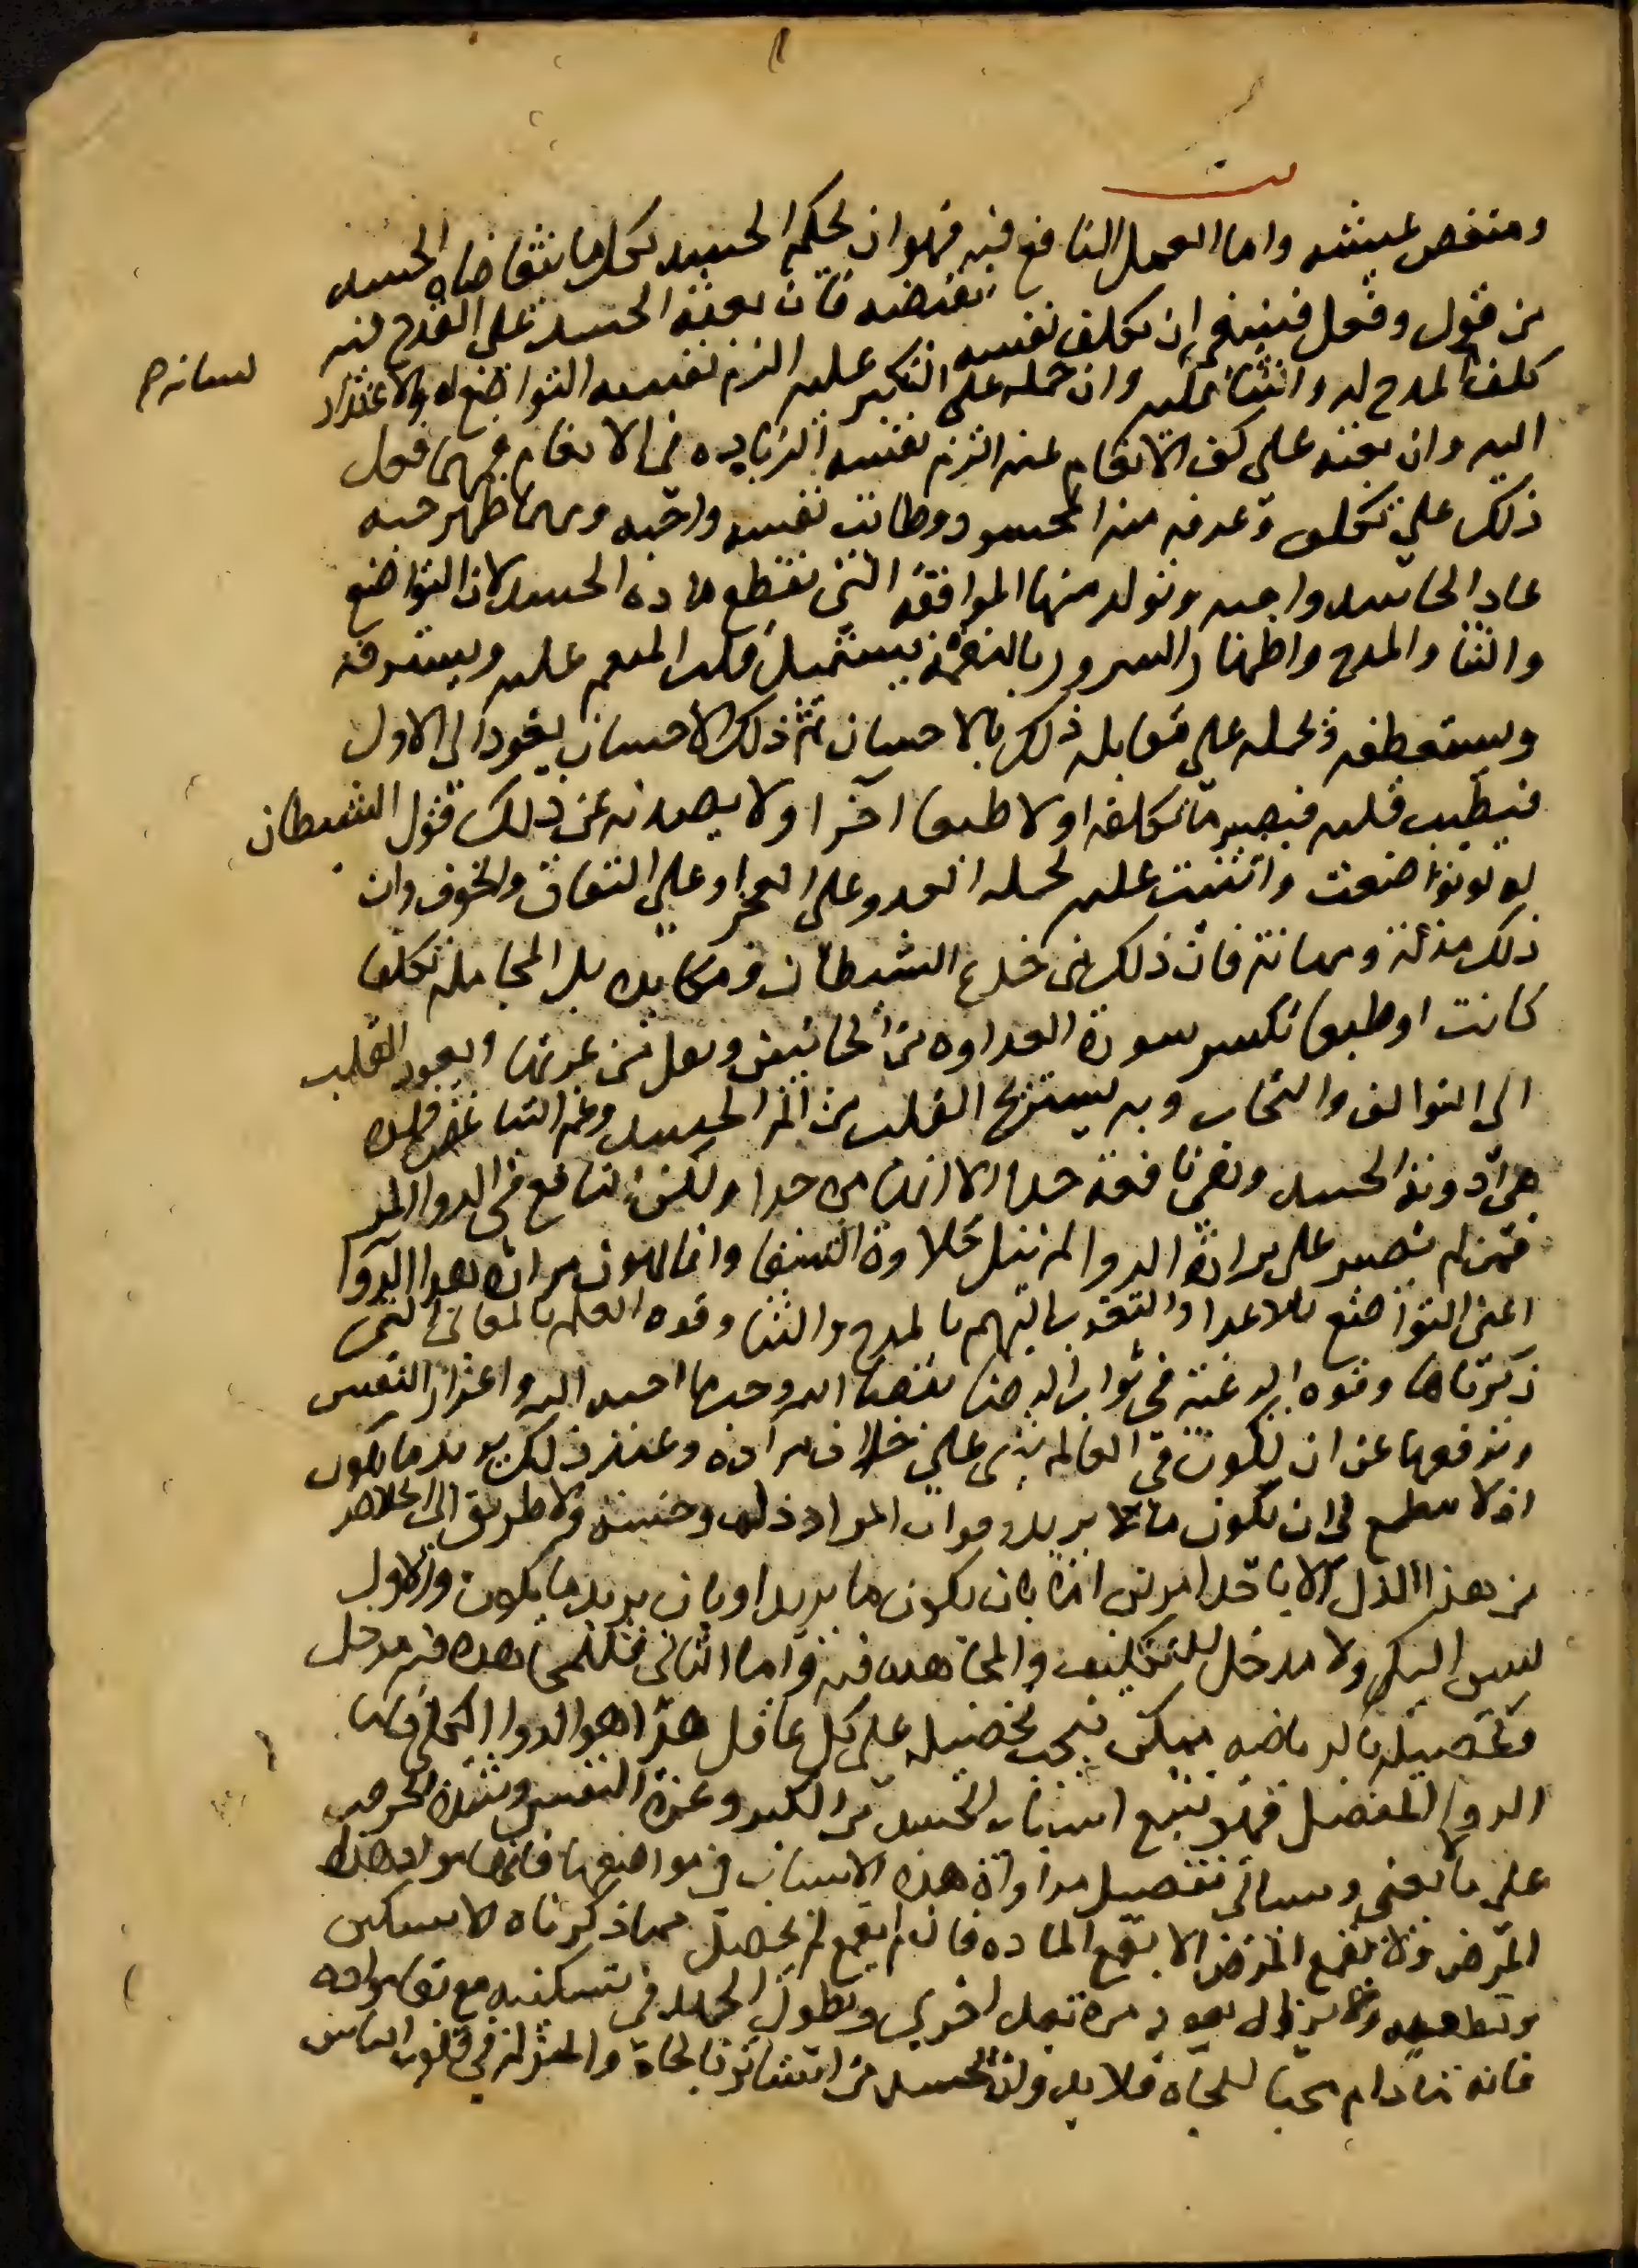 ومنغص عيشه واما العمل النافع فيه فهو ان يحكم الحسد فكل ما يتقاضاه الحسد
من قول وفعل فينبغي ان يكلف نفسه نقيضه فان بعثه الحسد على القدح فيه
لسانه
كلف المدح له والثناء عليه وان حمله على التكبر عليه الزم نفسه التواضع له والاعتذار
اليه وان بعثه على كف الانعام عنه الزم نفسه الزيادة في الانعام فمهما فعل
ذلك على تكلف وعرفه منه المحسود وطابت نفسه واحبه ومهما ظهر حبه
عاد الحاسد واحبه وتولد منها الموافقه التي تقطع ماده الحسد لان التواضع
والثنا والمدح واظهار السرور بالنعمة يستميل قلب المنعم عليه ويسترقه
ويستعطفه ويحمله على مقابله ذلك بالاحسان ثم ذلك الاحسان يعود الى الاول
فيطيب قلبه فيصير ما تكلفه اولا طبعا آخرا ولا يصدنه عن ذلك قول الشيطان
له لو تواضعت واثنيت عليه لحمله العدو على العجز او على النفاق والخوف وان
ذلك مذلة ومهانة فان ذلك من خدع الشيطان ومكايده بل المجاملة تكلفا
كانت او طبعا تكسر سورة العداوه من الجانبين ويقل من غربها ويعود القلب
الى التوالف والتحاب وبه يستريح القلب من الم الحسد وغم التباغض فهذه
هي ادوية الحسد وهي نافعة جدا الا انها مره جدا ولكن النافع في الدوا المر
فمن لم يصبر على مرارة الدوا لم ينل حلاوة الشفا وانما يهون مرارة هذا الدوا
اعني التواضع للاعدا والتقرب اليهم بالمدح والثنا وقوه العلم بالمعاني التي
ذكرناها وقوه الرغبة في ثواب الرضا بقضا الله وحب ما احبه الله واعزاز النفس
وترفعها عن ان يكون في العالم شي على خلاف مراده وعند ذلك يريد ما يكون
اذ لا مطمع في ان يكون ما لا يريد وفوات المراد ذل وخسه ولا طريق الى الخلاص
من هذا الذل الا باحد امرين اما بان يكون ما يريد او بان يريد ما يكون والاول
ليس اليك ولا مدخل للتكليف والمجاهده فيه واما الثاني فللمجاهده فيه مدخل
وتحصيله بالرياضه ممكن فيجب تحصيله على كل عاقل هذا هو الدوا الكلي فاما
الدوا المفصل فهو تتبع اسباب الحسد من الكبر وعزة النفس وشدة الحرص
على ما لا يعني وسياتي تفصيل مداواة هذه الاسباب في مواضعها فانها مواد هذا
المرض ولا يقمع المرض الا بقمع الماده فان لم يقمع لم يحصل مما ذكرناه الا تسكين
وتطفيه ولا يزال يعود مرة بعد اخرى ويطول الجهد في تسكينه مع بقا مواده
فانه ما دام محبا للجاه فلا بد وان يحسد من استاثر بالجاه والمنزلة في قلوب الناس